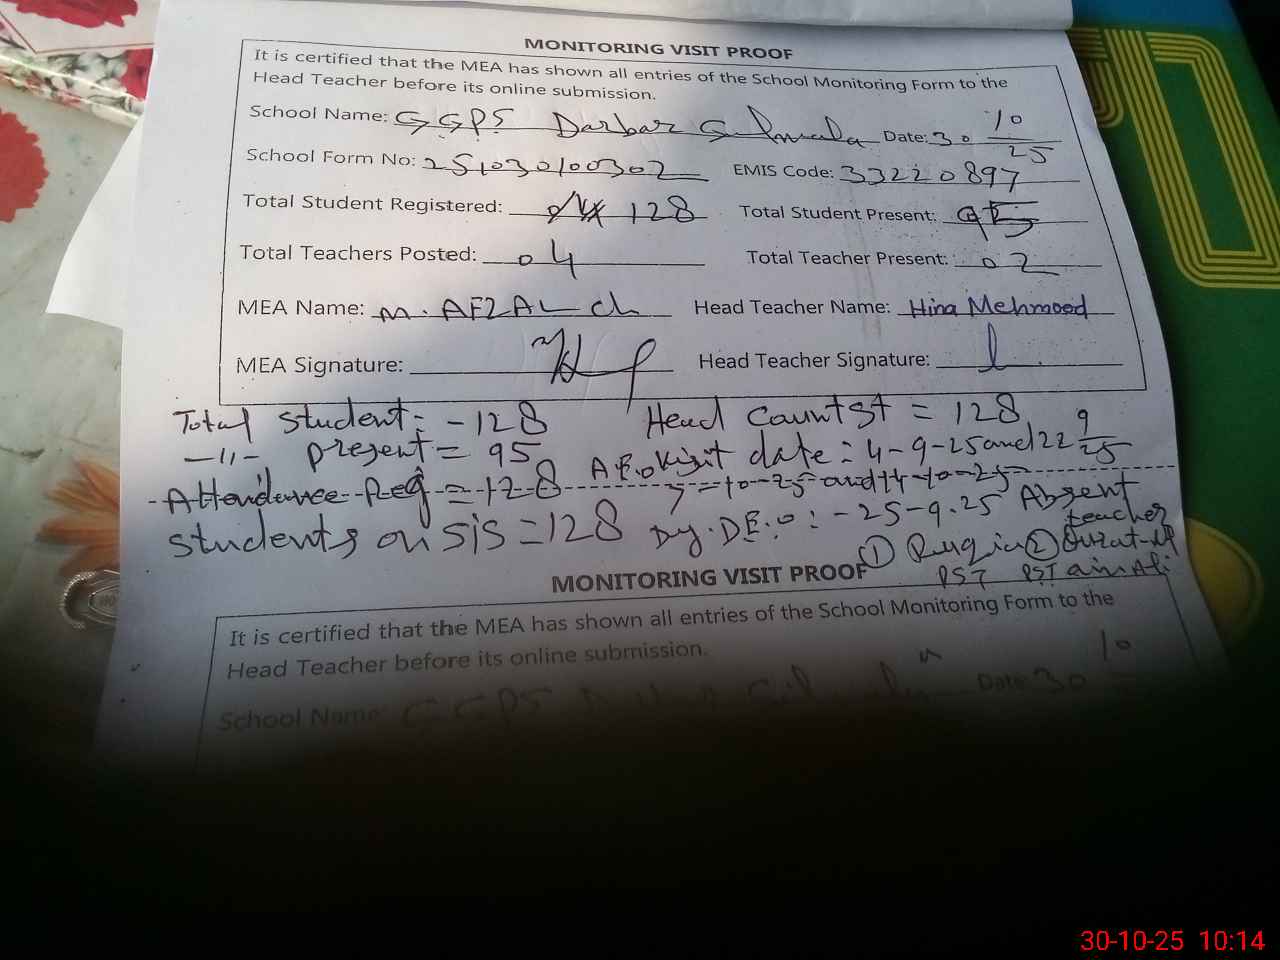 MONITORING VISIT PROOF
It is certified that the MEA has shown all entries of the School Monitoring Form to the
Head Teacher before its online submission.
School Name: GGPS Darbar Date: 30 10/25
School Form No: 251030100302 EMIS Code: 33220897
Total Student Registered: 128 Total Student Present: 95
Total Teachers Posted: 04 Total Teacher Present: 02
MEA Name: M. AFZAL Ch Head Teacher Name: Hina Mehmood
MEA Signature: Head Teacher Signature:
Total Student: - 128 Head Count St = 128
-"- present = 95 AEO Visit date: 4-9-25 and 22 9/25
Attendance Reg = 128 7-10-25 and 14-10-25
Students on SIS = 128 Dy. DE.O: - 25-9.25 Absent
teacher
① ②
PST PST
MONITORING VISIT PROOF
It is certified that the MEA has shown all entries of the School Monitoring Form to the
Head Teacher before its online submission.
School Name: GGPS Date: 30 10
30-10-25 10:14